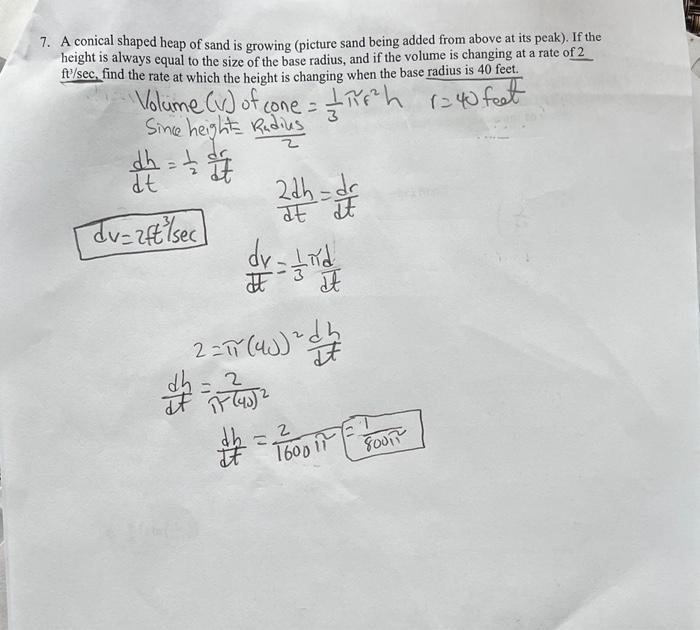 7. A conical shaped heap of sand is growing (picture sand being added from above at its peak). If the
height is always equal to the size of the base radius, and if the volume is changing at a rate of 2
ft³/sec, find the rate at which the height is changing when the base radius is 40 feet.
Volume (v) of cone = 1/3 πr²h r = 40 feet
Since height = Radius/2
dh/dt = 1/2 dr/dt
2dh/dt = dr/dt
dv = 2ft³/sec
dv/dt = 1/3 πd/dt
2 = π(40)² dh/dt
dh/dt = 2/π(40)²
dh/dt = 2/1600π = 1/800π